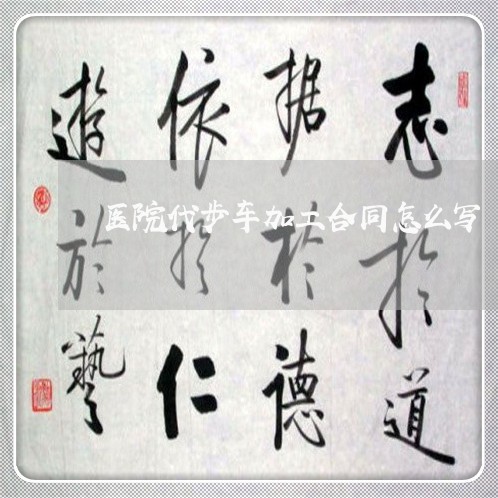 志於道
据於德
依於仁
遊於藝
医院代步车加工合同怎么写